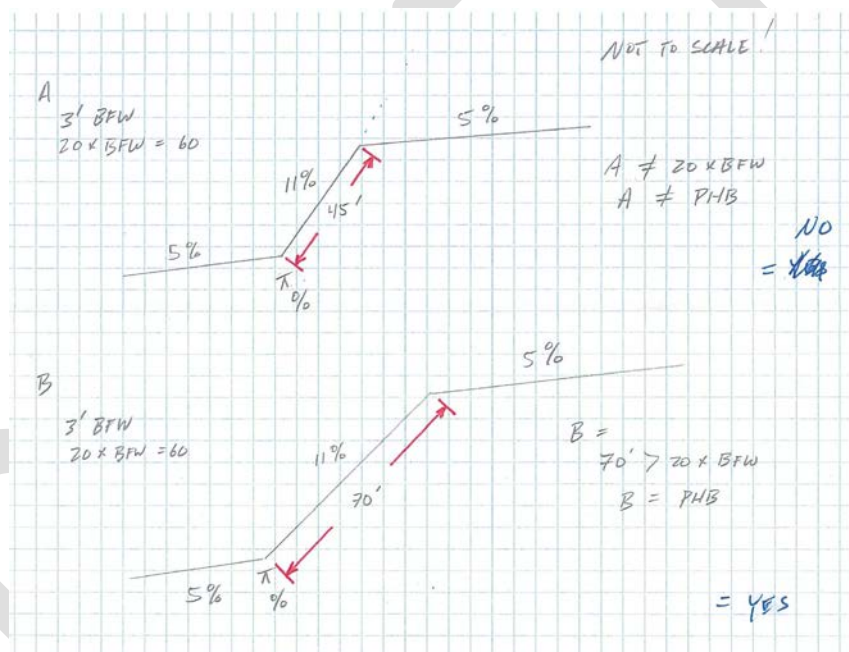 NOT TO SCALE!
A
3' BFW
20 x BFW = 60
5%
11%
45'
5%
%
A ≠ 20 x BFW
A ≠ PHB
NO
=
B
3' BFW
20 x BFW = 60
5%
11%
70'
5%
%
B =
70' > 20 x BFW
B = PHB
= YES